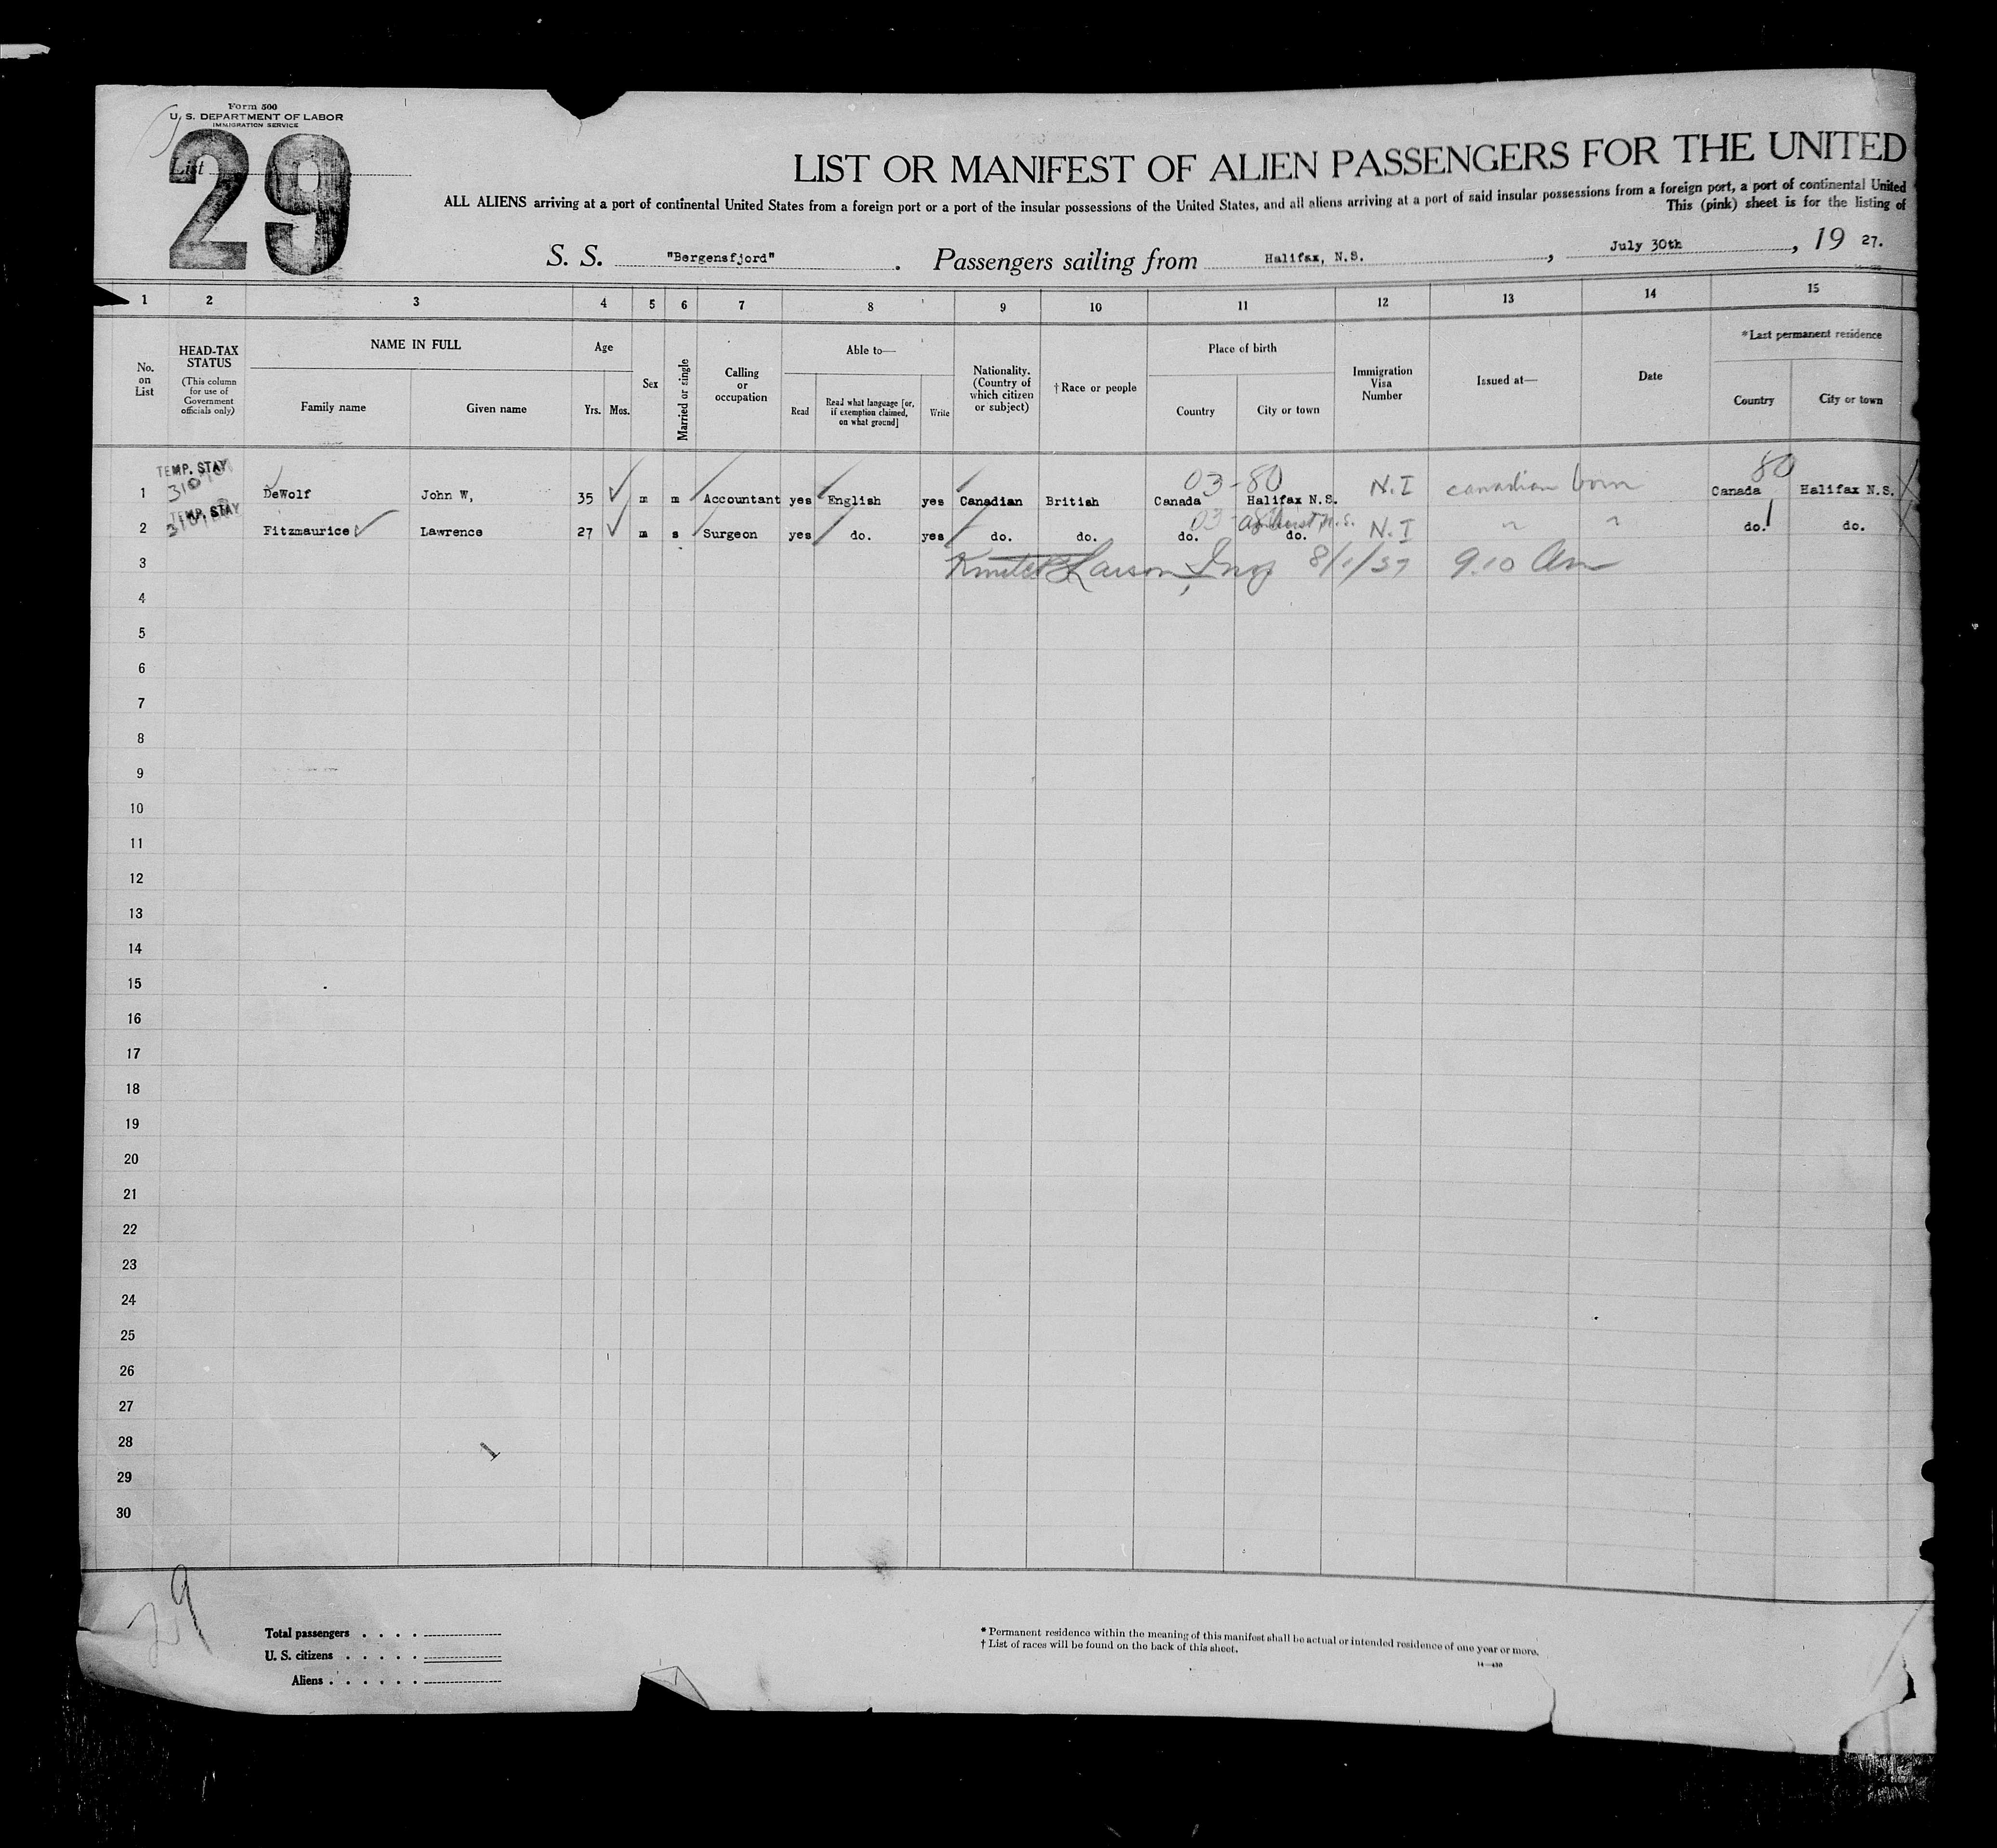 Form 500
U. S. DEPARTMENT OF LABOR
IMMIGRATION SERVICE
List
29
LIST OR MANIFEST OF ALIEN PASSENGERS FOR THE UNITED
ALL ALIENS arriving at a port of continental United States from a foreign port or a port of the insular possessions of the United States, and all aliens arriving at a port of said insular possessions from a foreign port, a port of continental United
This (pink) sheet is for the listing of
S. S. "Bergensfjord". Passengers sailing from Halifax, N.S., July 30th, 19 27.
1 2 3 4 5 6 7 8 9 10 11 12 13 14 15
No. on List
HEAD-TAX STATUS (This column for use of Government officials only)
NAME IN FULL
Family name Given name
Age
Yrs. Mos.
Sex
Married or single
Calling or occupation
Able to—
Read Read what language [or, if exemption claimed, on what ground] Write
Nationality. (Country of which citizen or subject)
†Race or people
Place of birth
Country City or town
Immigration Visa Number
Issued at—
Date
*Last permanent residence
Country City or town
TEMP. STAY 03-80 80
1 DeWolf John W, 35 m m Accountant yes English yes Canadian British Canada Halifax N.S. N.I canadian born Canada Halifax N.S.
TEMP. STAY 03 N.S.
2 Fitzmaurice Lawrence 27 m s Surgeon yes do. yes do. do. do. do. N.I " " do. do.
3 Larson, Insp 8/1/27 9.10 Am
4
5
6
7
8
9
10
11
12
13
14
15
16
17
18
19
20
21
22
23
24
25
26
27
28
29
30
1
29
Total passengers
U. S. citizens
Aliens
* Permanent residence within the meaning of this manifest shall be actual or intended residence of one year or more.
† List of races will be found on the back of this sheet.
14—430